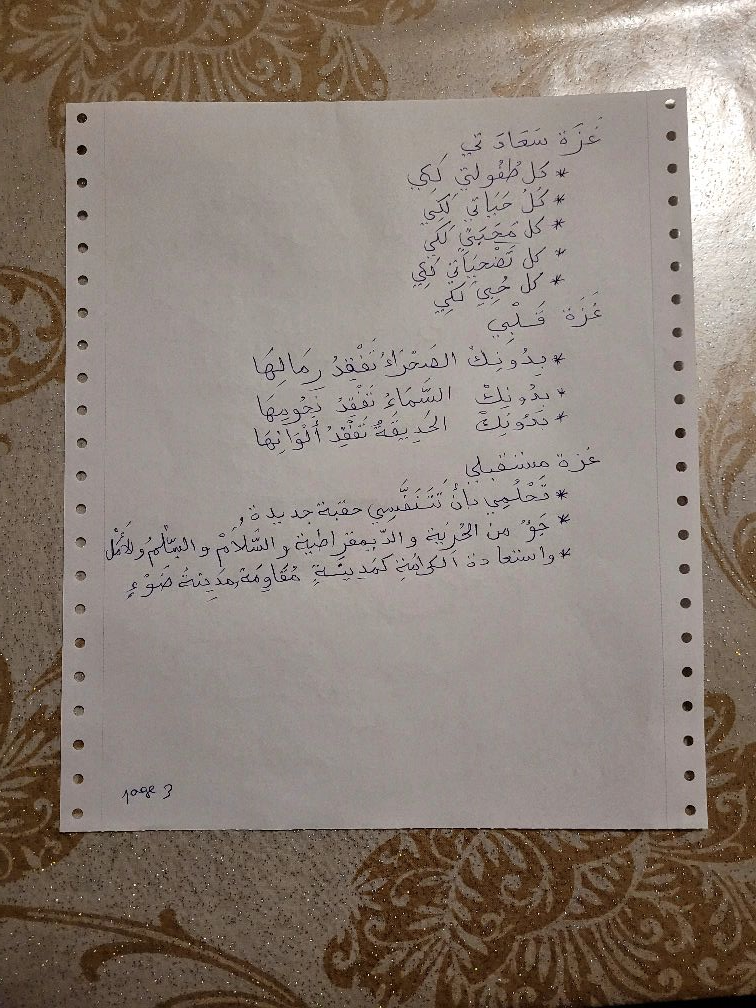 غَزَة سَعَادَ تي
* كل طُفُولتي لَكِي
* كُلُ حَيَاتي لَكِي
* كل مَحَبَتِي لَكِي
* كل تَضْحِيَاتي لَكِي
* كل حُبِي لَكِي
غَزَة قَلْبِي
* بِدُونِكْ الصَحْرَاءُ تَفْقِدُ رِمَالِهَا
* بِدُونِكْ السَّمَاءُ تَفْقِدُ نُجُومِهَا
* بِدُونِكْ الحَدِيقَةُ تَفْقِدُ أَلْوَانِهَا
غزة مستقبلي
* تَحْلُمِي بِأنْ تَتَنَفَّسِي حقبة جديدة,
* جَوٌ من الحُرِيَة والدّيمقراطية والسَّلاَمْ والسِّلمُ والأَمَل
* واستعادة الكرامَةِ كمَدِينَةِ مُقَاوِمَة, مَدِينَةُ ضَوْءٍ
page 3